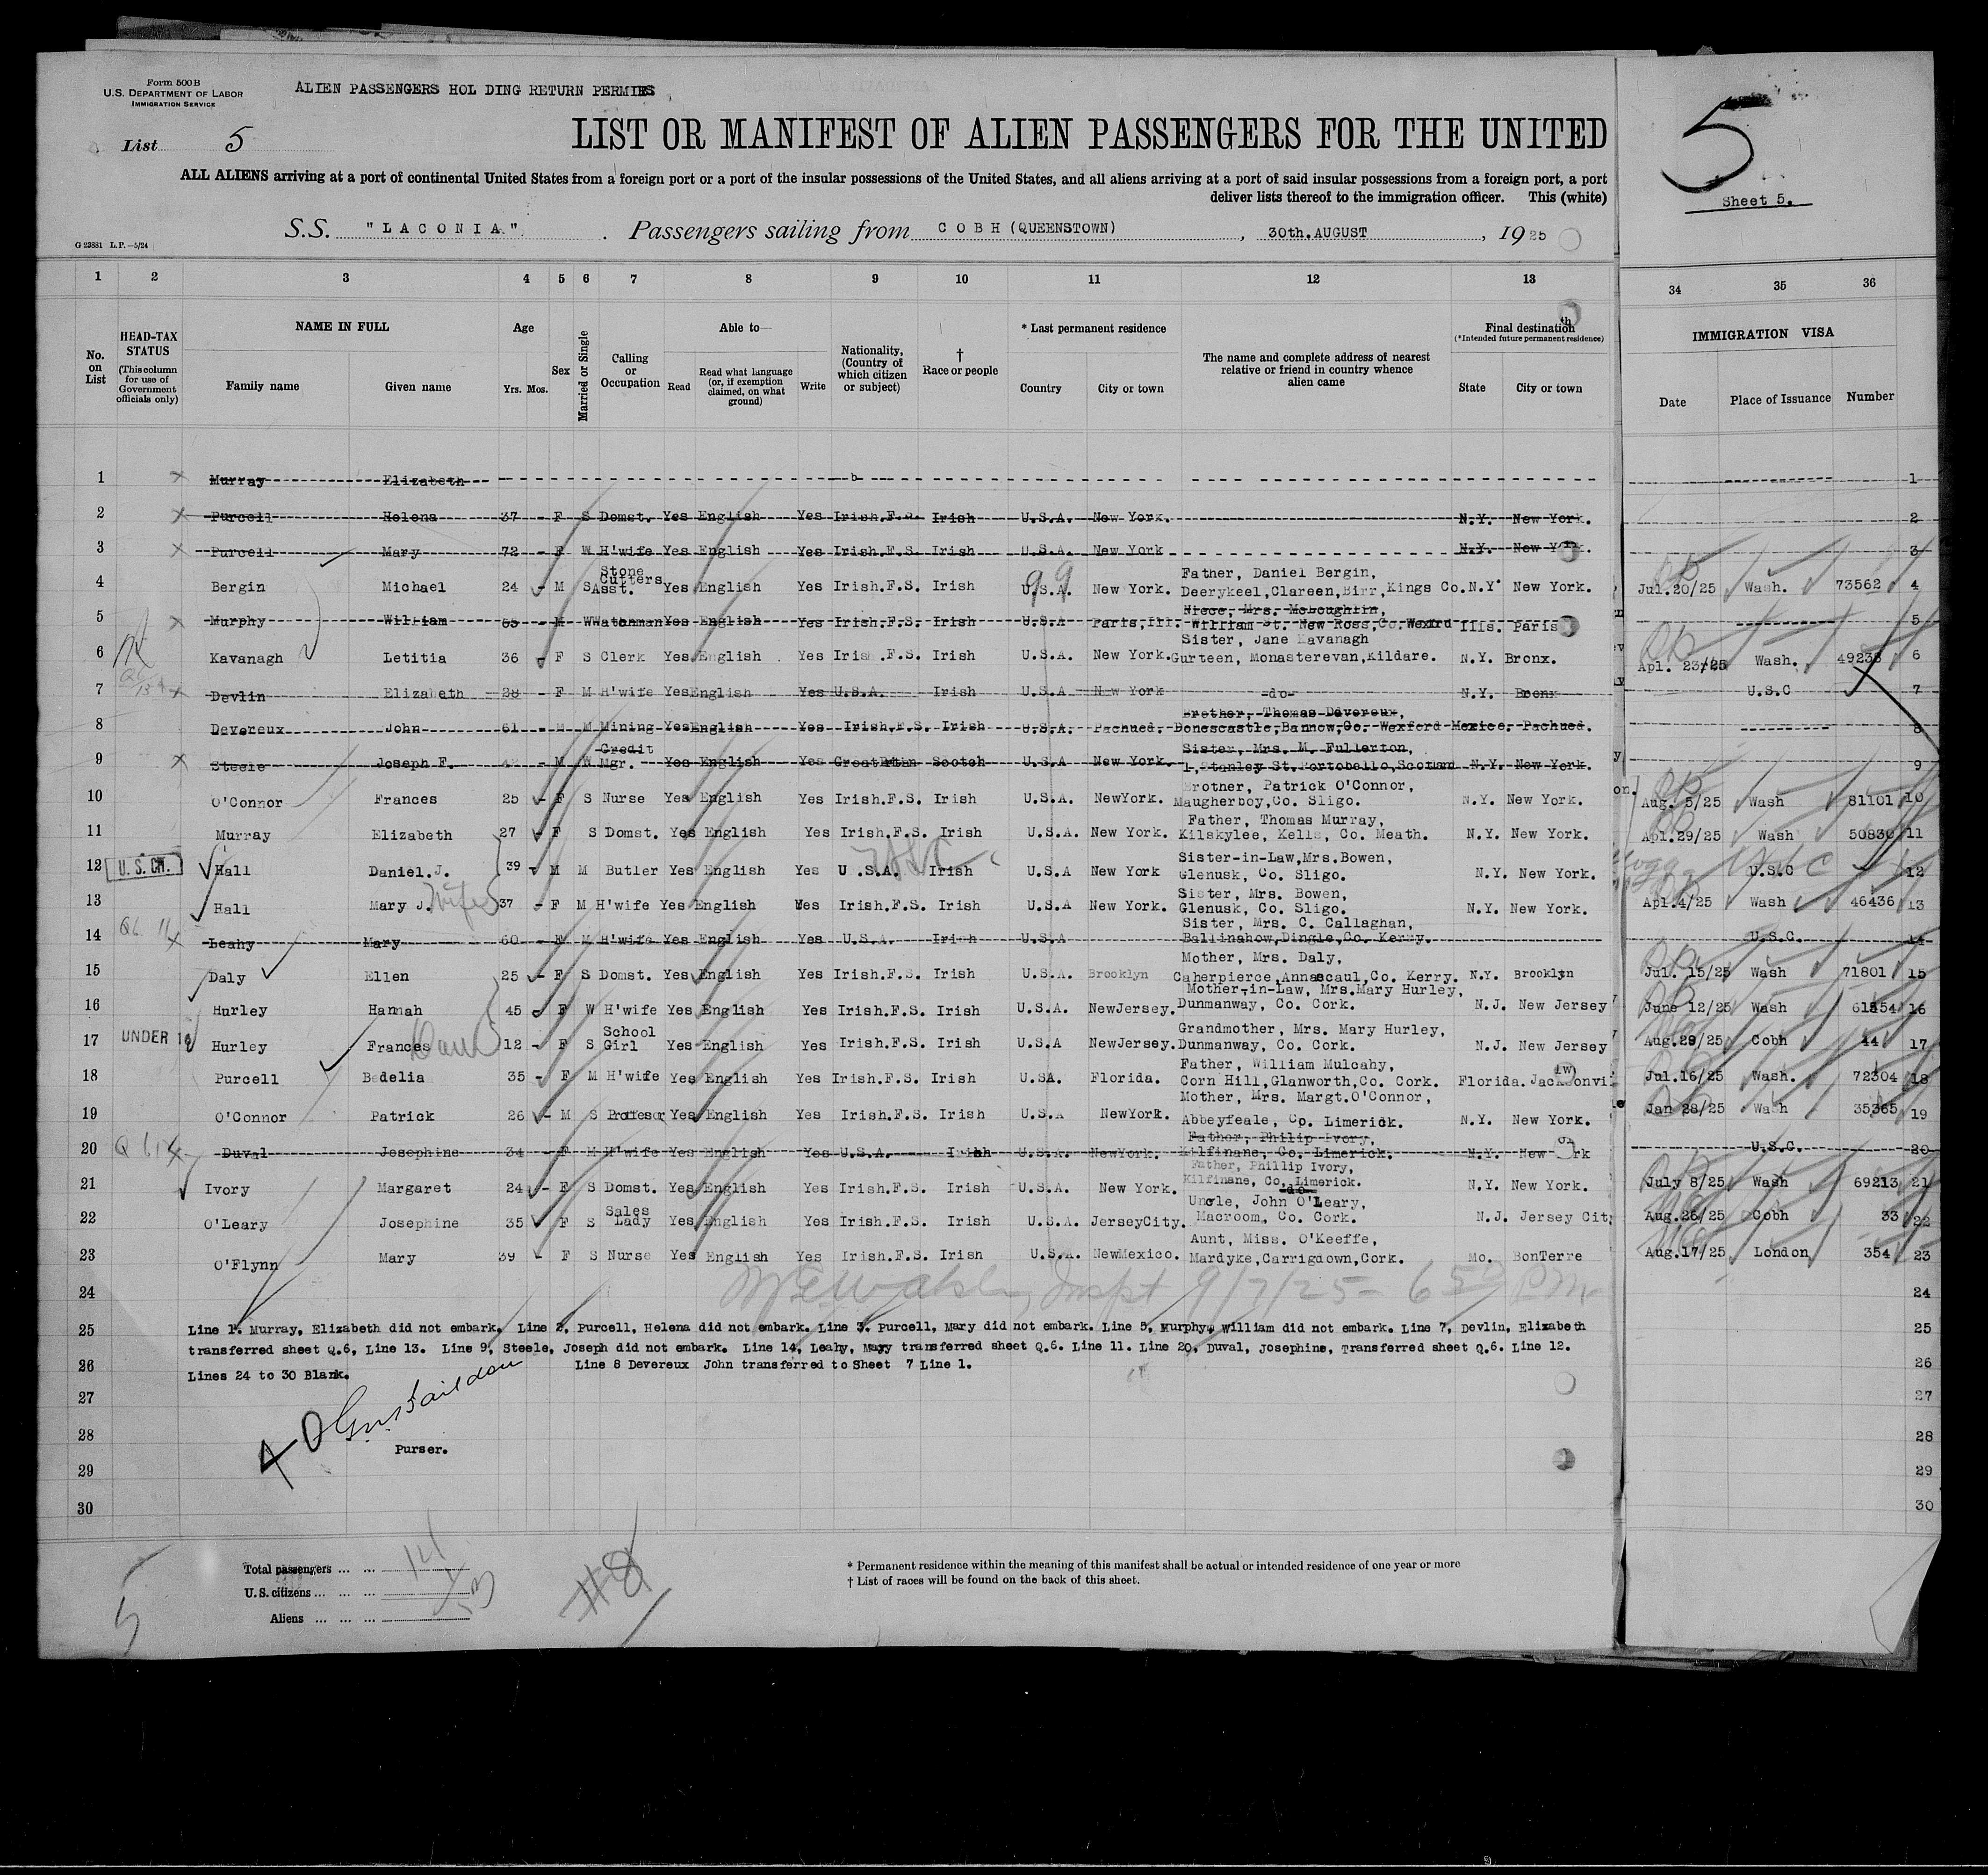 Form 500B
U.S. DEPARTMENT OF LABOR
IMMIGRATION SERVICE
ALIEN PASSENGERS HOL DING RETURN PERMITS
List 5
LIST OR MANIFEST OF ALIEN PASSENGERS FOR THE UNITED
5
Sheet 5.
ALL ALIENS arriving at a port of continental United States from a foreign port or a port of the insular possessions of the United States, and all aliens arriving at a port of said insular possessions from a foreign port, a port
deliver lists thereof to the immigration officer. This (white)
S.S. "LACONIA" . Passengers sailing from COBH (QUEENSTOWN) , 30th.AUGUST , 1925
G 23881 L.P.—5/24
1 2 3 4 5 6 7 8 9 10 11 12 13 34 35 36
No. on List
HEAD-TAX STATUS
(This column for use of Government officials only)
NAME IN FULL
Family name Given name
Age
Yrs. Mos.
Sex
Married or Single
Calling or Occupation
Able to—
Read Read what language (or, if exemption claimed, on what ground) Write
Nationality, (Country of which citizen or subject)
† Race or people
* Last permanent residence
Country City or town
The name and complete address of nearest relative or friend in country whence alien came
Final destination
(*Intended future permanent residence)
State City or town
IMMIGRATION VISA
Date Place of Issuance Number
1 Murray Elizabeth 1
2 Purcell Helena 37 - F S Domst. Yes English Yes Irish.F.S. Irish U.S.A. New York. N.Y. New York. 2
3 Purcell Mary 72 - F W H'wife Yes English Yes Irish.F.S. Irish U.S.A. New York N.Y. New York. 3
4 Bergin Michael 24 - M S Stone Cutters Asst. Yes English Yes Irish.F.S. Irish U.S.A. New York. Father, Daniel Bergin, Deerykeel,Clareen,Birr,Kings Co. N.Y. New York. Jul.20/25 Wash. 73562 4
5 Murphy William 65 - M W Watchman Yes English Yes Irish.F.S. Irish U.S.A Paris,Ill. Niece, Mrs. McLoughlin, William St. New Ross,Co.Wexford Ills. Paris 5
6 Kavanagh Letitia 36 - F S Clerk Yes English Yes Irish.F.S. Irish U.S.A. New York. Sister, Jane Kavanagh Gurteen, Monasterevan,Kildare. N.Y. Bronx. Apl. 23/25 Wash. 49238 6
7 Devlin Elizabeth 28 - F M H'wife Yes English Yes U.S.A. Irish U.S.A New York -do- N.Y. Bronx U.S.C 7
8 Devereux John 61 - M M Mining Yes English Yes Irish.F.S. Irish U.S.A. Pachued. Brother, Thomas Devereux, Donescastle,Bannow,Co. Wexford Mexico. Pachued. 8
9 Steele Joseph F. M W Credit Mgr. Yes English Yes Great Britan Scotch U.S.A New York. Sister, Mrs. M. Fullerton, 1,Stanley St.Portobello,Scotland N.Y. New York. 9
10 O'Connor Frances 25 - F S Nurse Yes English Yes Irish.F.S. Irish U.S.A. NewYork. Brother, Patrick O'Connor, Maugherboy,Co. Sligo. N.Y. New York. Aug. 5/25 Wash 81101 10
11 Murray Elizabeth 27 - F S Domst. Yes English Yes Irish.F.S. Irish U.S.A. New York. Father, Thomas Murray, Kilskylee, Kells, Co. Meath. N.Y. New York. Apl.29/25 Wash 50830 11
12 U.S. CIT. Hall Daniel.J. 39 - M M Butler Yes English Yes U.S.A. Irish U.S.A New York Sister-in-Law,Mrs.Bowen, Glenusk, Co. Sligo. N.Y. New York. U.S.C 12
13 Hall Mary J. wife 37 - F M H'wife Yes English Yes Irish.F.S. Irish U.S.A New York. Sister, Mrs. Bowen, Glenusk, Co. Sligo. N.Y. New York. Apl.4/25 Wash 46436 13
14 Leahy Mary 60 - F M H'wife Yes English Yes U.S.A. Irish U.S.A Sister, Mrs. C. Callaghan, Ballinahow,Dingle,Co. Kerry. U.S.C. 14
15 Daly Ellen 25 - F S Domst. Yes English Yes Irish.F.S. Irish U.S.A. Brooklyn Mother, Mrs. Daly, Caherpierce,Annascaul,Co. Kerry. N.Y. Brooklyn Jul. 15/25 Wash 71801 15
16 Hurley Hannah 45 - F W H'wife Yes English Yes Irish.F.S. Irish U.S.A. NewJersey. Mother-in-Law, Mrs.Mary Hurley, Dunmanway, Co. Cork. N.J. New Jersey June 12/25 Wash 61554 16
17 UNDER 16 Hurley Frances Dau 12 - F S School Girl Yes English Yes Irish.F.S. Irish U.S.A NewJersey. Grandmother, Mrs. Mary Hurley, Dunmanway, Co. Cork. N.J. New Jersey Aug.29/25 Cobh 44 17
18 Purcell Bedelia 35 - F M H'wife Yes English Yes Irish.F.S. Irish U.SA. Florida. Father, William Mulcahy, Corn Hill,Glanworth,Co. Cork. Florida. Jacksonvi Jul.16/25 Wash. 72304 18
19 O'Connor Patrick 26 - M S Proffesor Yes English Yes Irish.F.S. Irish U.S.A NewYork. Mother, Mrs. Margt.O'Connor, Abbeyfeale, Co. Limerick. N.Y. New York. Jan 28/25 Wash 35365 19
20 Duval Josephine 34 - F M H'wife Yes English Yes U.S.A. Irish U.S.A. NewYork. Father, Philip Ivory, Kilfinane, Co. Limerick. N.Y. New York U.S.C. 20
21 Ivory Margaret 24 - F S Domst. Yes English Yes Irish.F.S. Irish U.S.A. New York. Father, Phillip Ivory, Kilfinane, Co. Limerick. -do- N.Y. New York. July 8/25 Wash 69213 21
22 O'Leary Josephine 35 F S Sales Lady Yes English Yes Irish.F.S. Irish U.S.A. JerseyCity. Uncle, John O'Leary, Macroom, Co. Cork. N.J. Jersey Cit Aug.26/25 Cobh 33 22
23 O'Flynn Mary 39 - F S Nurse Yes English Yes Irish.F.S. Irish U.S.A. NewMexico. Aunt, Miss. O'Keeffe, Mardyke,Carrigdown,Cork. Mo. BonTerre Aug.17/25 London 354 23
24 Inspt 9/7/25 - 6 50 PM 24
25 Line 1. Murray, Elizabeth did not embark. Line 2, Purcell, Helena did not embark. Line 3. Purcell, Mary did not embark. Line 5, Murphy, William did not embark. Line 7, Devlin, Elizabeth 25
transferred sheet Q.6, Line 13. Line 9, Steele, Joseph did not embark. Line 14, Leahy, Mary transferred sheet Q.6. Line 11. Line 20, Duval, Josephine, Transferred sheet Q.6. Line 12.
26 Lines 24 to 30 Blank. Line 8 Devereux John transferred to Sheet 7 Line 1. 26
27 27
28 28
Purser.
29 29
30 30
Total passengers ... ... 14
U.S. citizens ... ... ...
Aliens ... ... ... ...
#8
5
* Permanent residence within the meaning of this manifest shall be actual or intended residence of one year or more
† List of races will be found on the back of this sheet.